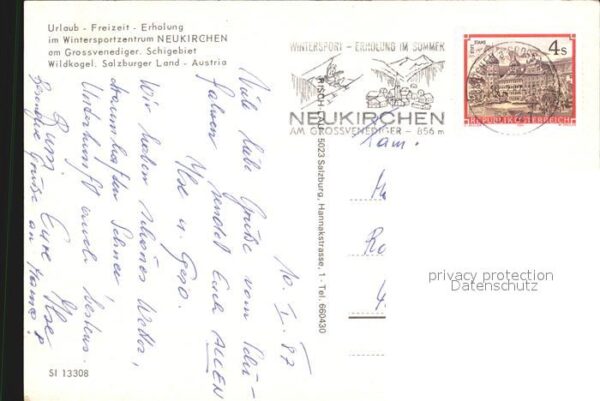 Urlaub - Freizeit - Erholung
im Wintersportzentrum NEUKIRCHEN
am Grossvenediger. Schigebiet
Wildkogel. Salzburger Land - Austria
WINTERSPORT - ERHOLUNG IM SOMMER
NEUKIRCHEN
AM GROSSVENEDIGER - 856 m
4 S
REPUBLIK ÖSTERREICH
10. I. 87
Viele liebe Grüße vom Schi-
fahren sendet Euch ALLEN
Ilse u.
Wir haben schönes Wetter,
traumhaften Schnee,
Unterkunft auch bestens.
Bussi Eure Ilse
Besondere Grüße an Mama!
5023 Salzburg, Hannakstrasse, 1 - Tel. 660430
Fam.
privacy protection
Datenschutz
SI 13308